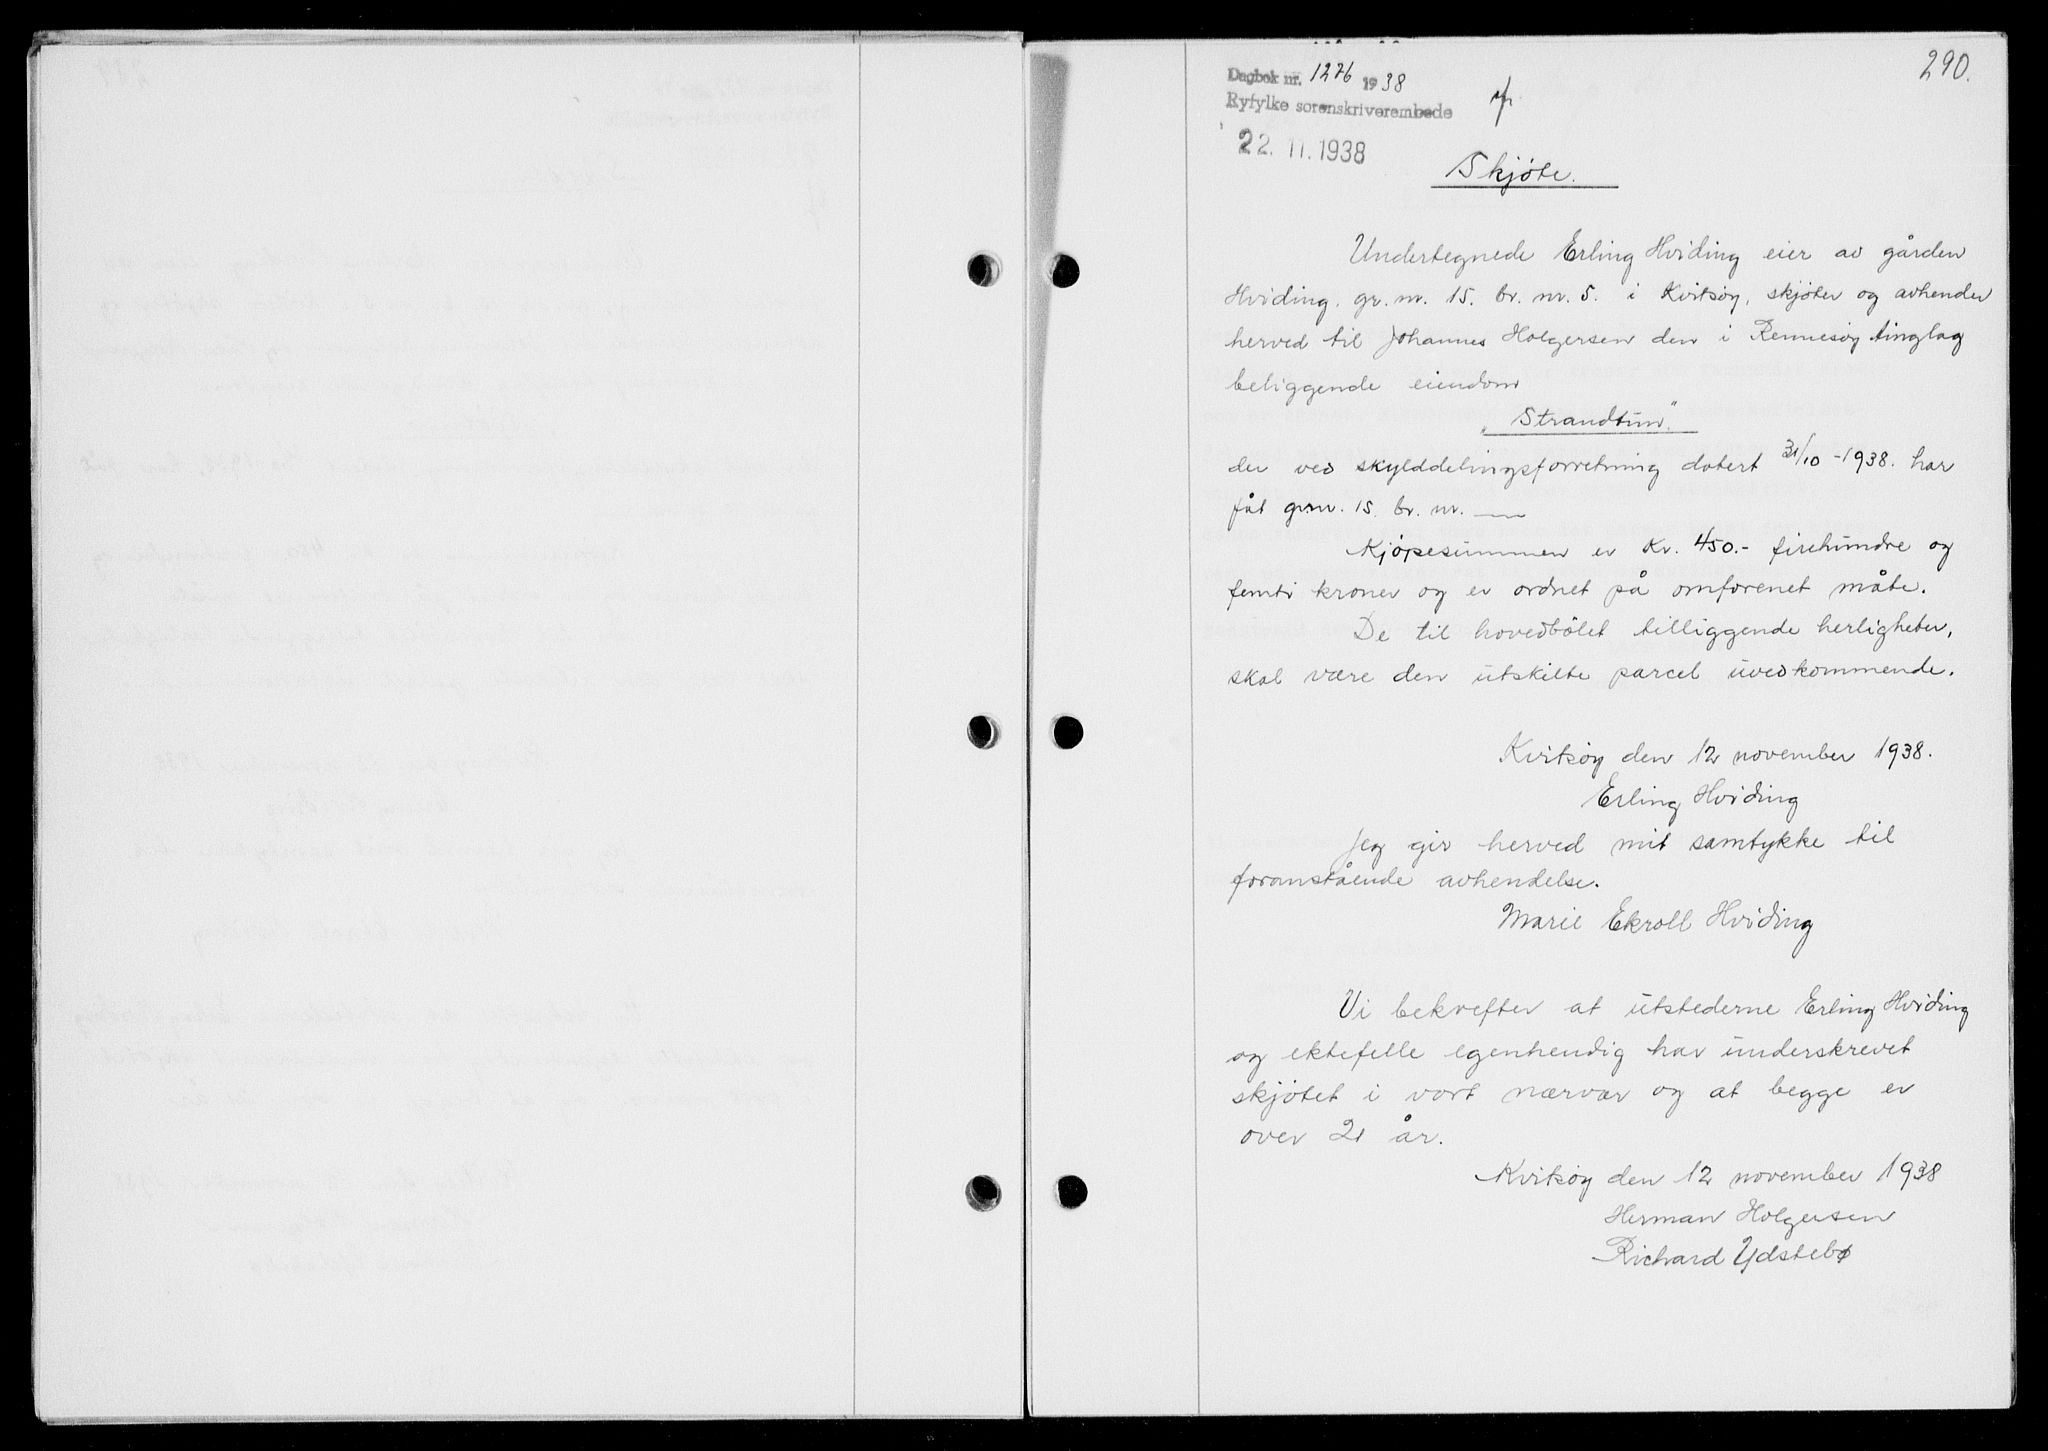 290.
Dagbok nr. 1276 1938
Ryfylke sorenskriverembede
22.11.1938
Skjøte.
Undertegnede Erling Hviding eier av gården
Hviding, gr. nr. 15. br. nr. 5. i Kvitsøy, skjøter og avhender
herved til Johannes Holgersen den i Rennesøy tinglag
beliggende eiendom
"Strandtun"
der ved skylddelingsforretning datert 31/10 -1938. har
fåt gr.nr. 15. br. nr. —
Kjøpesummen er Kr. 450.- firehundre og
femti kroner og er ordnet på omforenet måte.
De til hovedbølet tilliggende herligheter,
skal være den utskilte parcel uvedkommende.
Kvitsøy den 12 november 1938.
Erling Hviding
Jeg gir herved mit samtykke til
foranstående avhendelse.
Marie Ekroll Hviding
Vi bekrefter at utstederne Erling Hviding
og ektefelle egenhendig har underskrevet
skjøtet i vort nærvær og at begge er
over 21 år.
Kvitsøy den 12 november 1938
Herman Holgersen
Richard Ydstebø